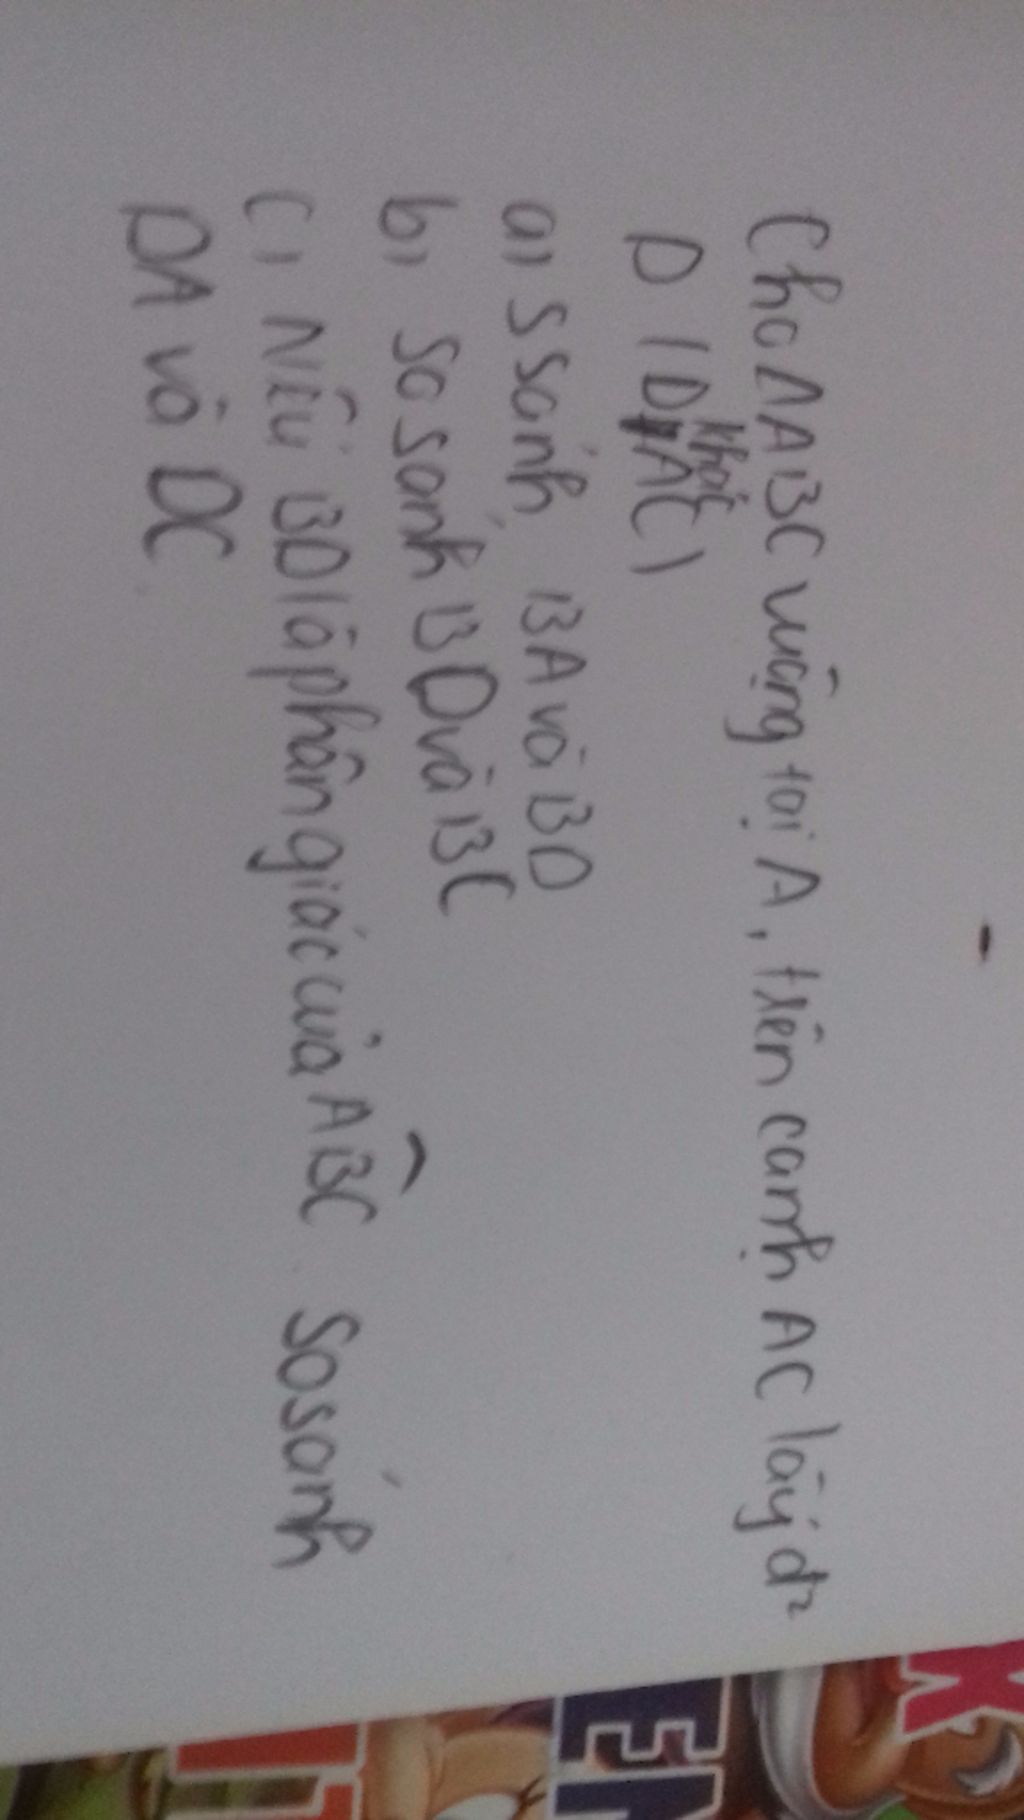 Cho ΔABC vuông tại A, trên cạnh AC lấy đ²
D (D khác AC)
a) S sánh BA và BD
b) So sánh BD và BC
c) Nếu BD là phân giác của ABC So sánh
DA và DC
X
EN